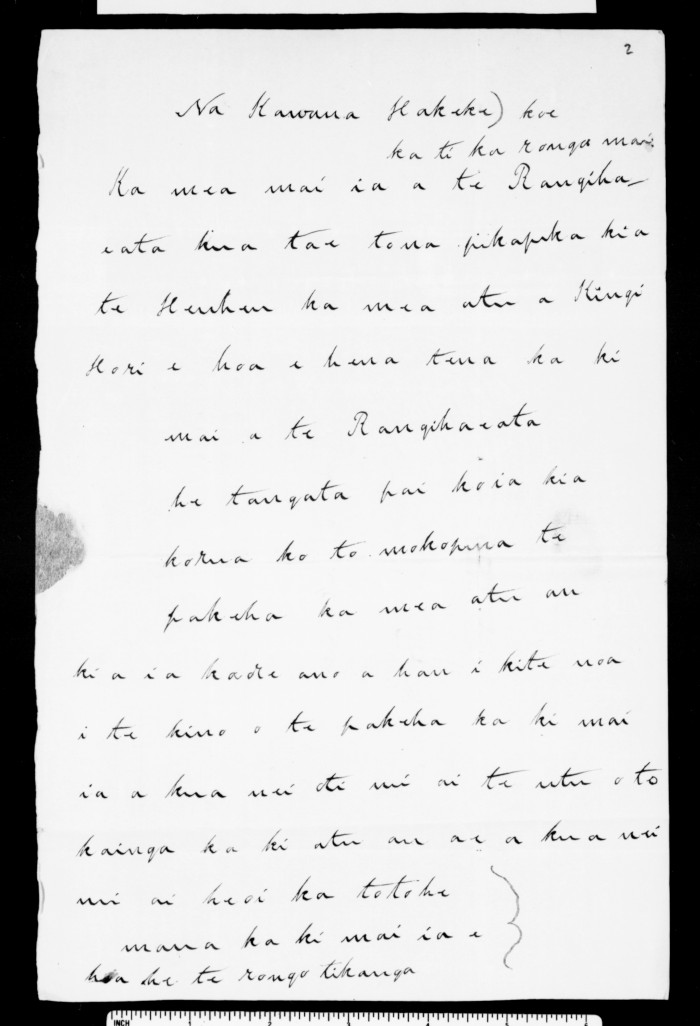 2
Na Kawana Hakeke) koe
ka ti ka rongo mai
Ka mea mai ia a te Rangiha-
eata kua tae tona pikapika kia
te Heuheu ka mea atu a Kingi
Hori e hoa e hena tena ka ki
mai a te Rangihaeata
he tangata pai koia kia
korua ko to mokopuna te
pakeha ka mea atu au
ki a ia kaore ano a hau i kite noa
i te kino o te pakeha ka ki mai
ia a kua nei oti mi ai te utu o to
kainga ka ki atu au ae a kua nei
mi ai heoi ka totohe
mana ka ki mai ia e
hoa he te rongo tikanga
INCH 1 2 3 4 5 6